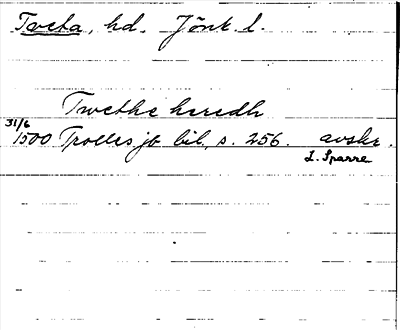 Tveta, hd. Jönk. l.
Twethe heredh
31/6
1500 Trolles jb bil., s. 256. avskr.
L. Sparre